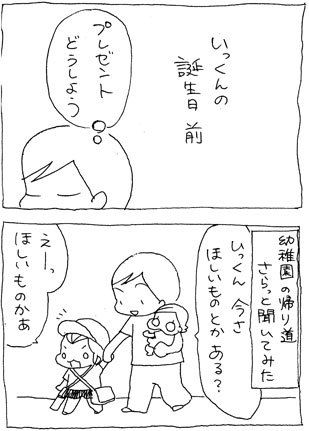 いっくんの
誕生日前
プレゼント
どうしよう
幼稚園の帰り道
さらっと聞いてみた
いっくん 今さ
ほしいものとかある？
えーっ
ほしいものかぁ